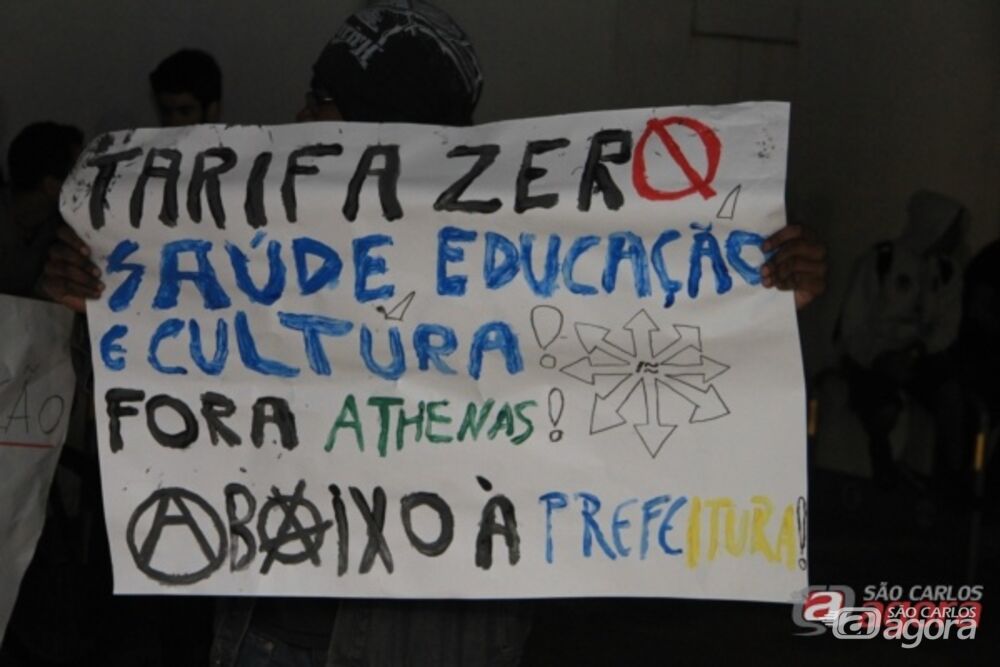 TARIFA ZERO
SAÚDE EDUCAÇÃO
E CULTURA!
FORA ATHENAS!
ABAIXO À PREFEITURA!
ÃO
SÃO CARLOS
agora
SÃO CARLOS
agora